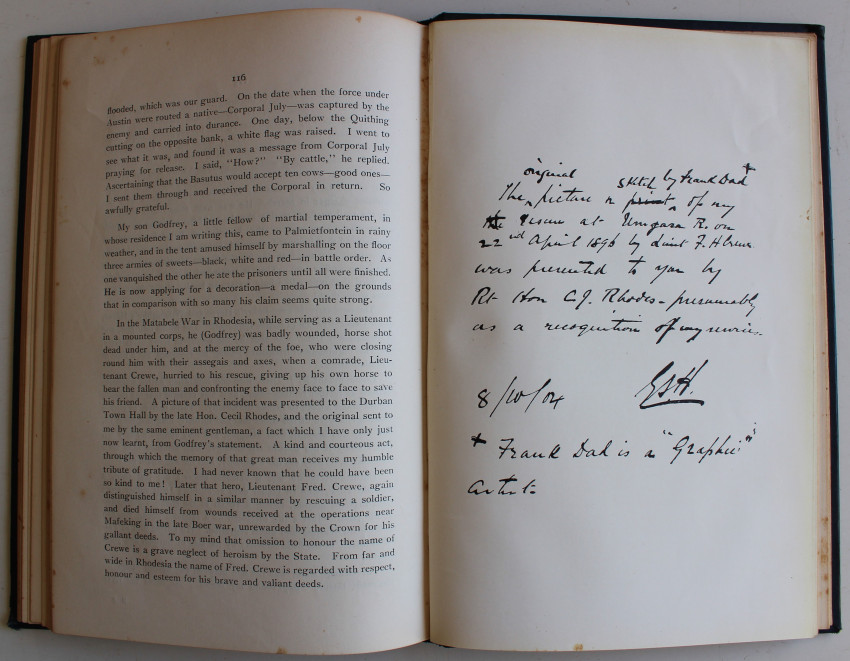 116
flooded, which was our guard. On the date when the force under
Austin were routed a native—Corporal July—was captured by the
enemy and carried into durance. One day, below the Quithing
cutting on the opposite bank, a white flag was raised. I went to
see what it was, and found it was a message from Corporal July
praying for release. I said, "How?" "By cattle," he replied.
Ascertaining that the Basutus would accept ten cows—good ones—
I sent them through and received the Corporal in return. So
awfully grateful.
My son Godfrey, a little fellow of martial temperament, in
whose residence I am writing this, came to Palmietfontein in rainy
weather, and in the tent amused himself by marshalling on the floor
three armies of sweets—black, white and red—in battle order. As
one vanquished the other he ate the prisoners until all were finished.
He is now applying for a decoration—a medal—on the grounds
that in comparison with so many his claim seems quite strong.
In the Matabele War in Rhodesia, while serving as a Lieutenant
in a mounted corps, he (Godfrey) was badly wounded, horse shot
dead under him, and at the mercy of the foe, who were closing
round him with their assegais and axes, when a comrade, Lieu-
tenant Crewe, hurried to his rescue, giving up his own horse to
bear the fallen man and confronting the enemy face to face to save
his friend. A picture of that incident was presented to the Durban
Town Hall by the late Hon. Cecil Rhodes, and the original sent to
me by the same eminent gentleman, a fact which I have only just
now learnt, from Godfrey's statement. A kind and courteous act,
through which the memory of that great man receives my humble
tribute of gratitude. I had never known that he could have been
so kind to me! Later that hero, Lieutenant Fred. Crewe, again
distinguished himself in a similar manner by rescuing a soldier,
and died himself from wounds received at the operations near
Mafeking in the late Boer war, unrewarded by the Crown for his
gallant deeds. To my mind that omission to honour the name of
Crewe is a grave neglect of heroism by the State. From far and
wide in Rhodesia the name of Fred. Crewe is regarded with respect,
honour and esteem for his brave and valiant deeds.
original sketch by Frank Dad +
The picture or print of my
rescue at Umguza R. on
22nd April 1896 by Lieut F. H Crewe
was presented to you by
Rt Hon C.J. Rhodes - presumably
as a recognition of my services.
8/10/04 
+ Frank Dad is a "Graphic"
artist-